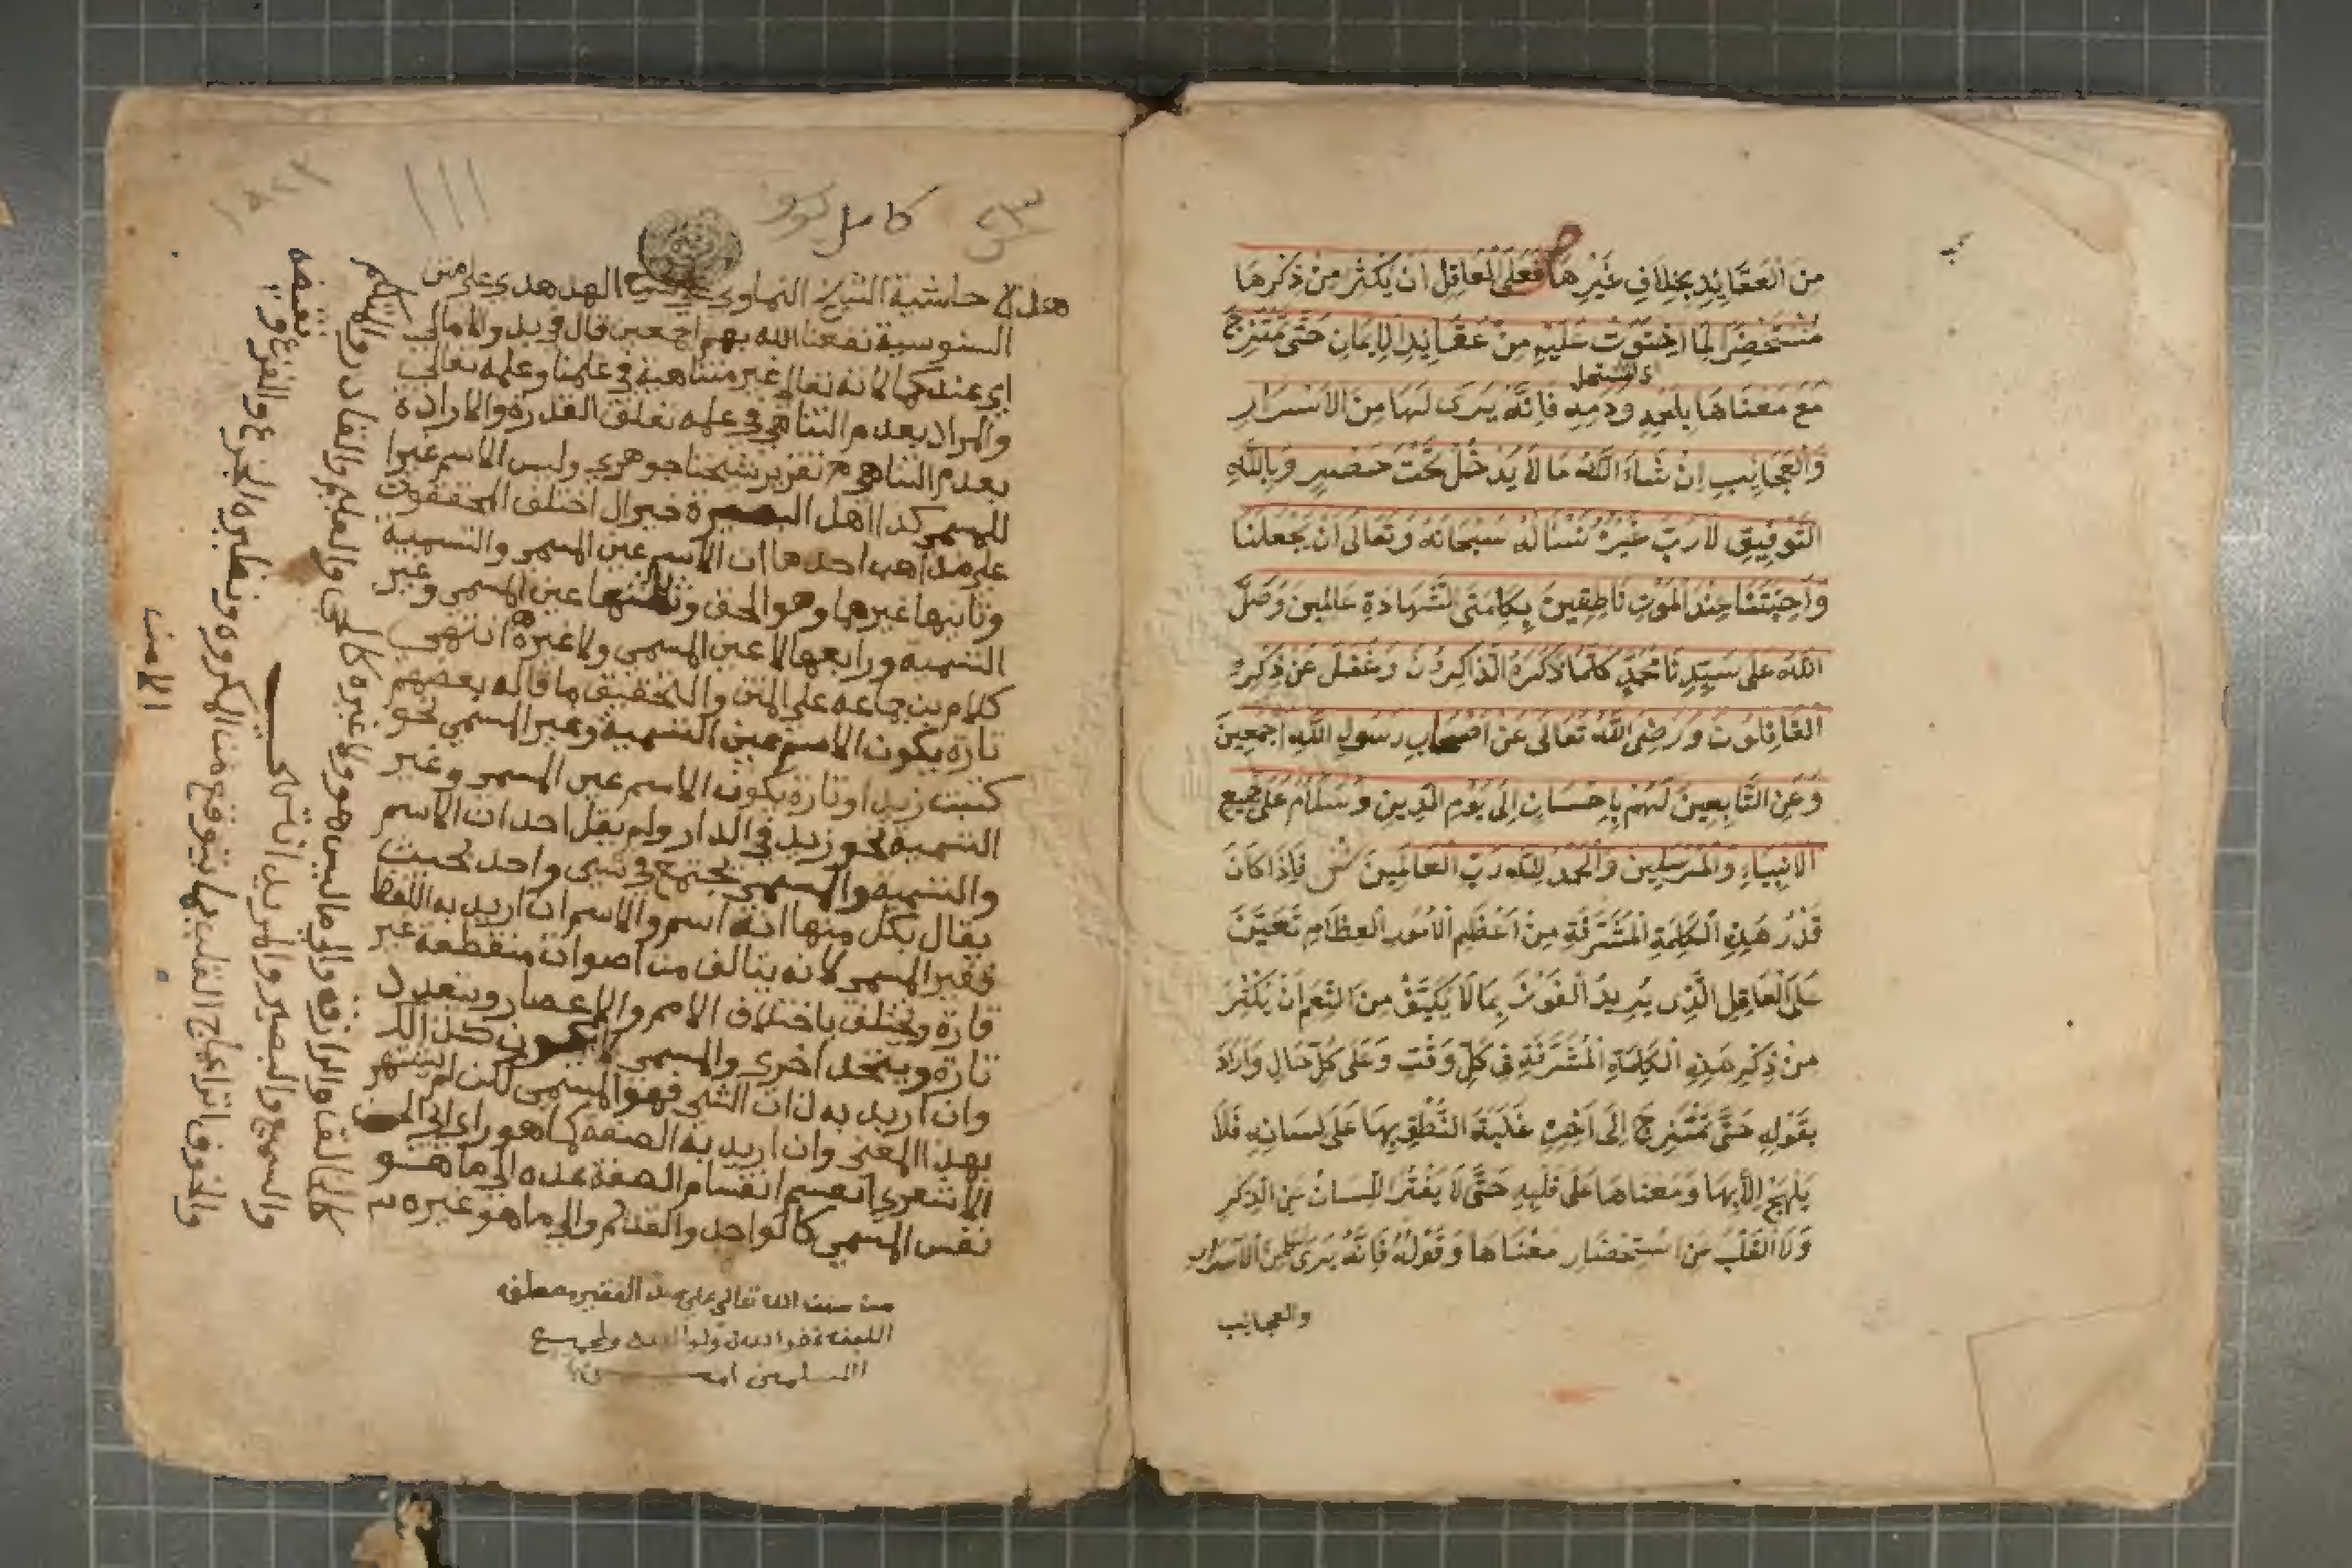 من العقايد بخلاف غيرها فعلى العاقل ان يكثر من ذكرها
مستحضرا لما احتوت عليه من عقايد الايمان حتى تمتزج
مع معناها بلحمه ودمه فانه يرى لها من الاسرار
والعجايب ان شاء الله ما لا يدخل تحت حصر وبالله
التوفيق لا رب غيره نساله سبحانه وتعالى ان يجعلنا
واحبتنا عند الموت ناطقين بكلمتى الشهادة عالمين وصلى
الله على سيدنا محمد كلما ذكره الذاكرون وغفل عن ذكره
الغافلون ورضى الله تعالى عن اصحاب رسول الله اجمعين
وعن التابعين لهم باحسان الى يوم الدين وسلام على جميع
الانبياء والمرسلين والحمد لله رب العالمين ش فاذا كان
قدر هذه الكلمة المشرفة من اعظم الامور العظام تعين
على العاقل الذى يريد الفوز بما لا يكيف من النعم ان يكثر
من ذكر هذه الكلمة المشرفة فى كل وقت وعلى كل حال واراد
بقوله حتى تمتزج الى اخره غلبة النطق بها على لسانه فلا
يلهج الا بها ومعناها على قلبه حتى لا يفتر اللسان عن الذكر
ولا القلب من استحضار معناها وقوله فانه يرى من الاسرار
والعجايب
كامل
١١١
هذه حاشية الشيخ الهدهدي على متن
السنوسية نفعنا الله بهم اجمعين قال في يد والامالي
اي عندك كمالاته تعالى غير متناهية في علمنا وعلمه تعالى
والمراد بعدم التناهي في علمه تعلق القدرة والارادة
بعدم التناهي تقرير شيخنا جوهري وليس الاسم غيرا
للمسمى كذا اهل البصيرة خير ال اختلف المحققون
على مذاهب احدها ان الاسم عين المسمى والتسمية
وثانيها غيرها وهو الحق وثالثها عين المسمى وغير
التسمية ورابعها لا عين المسمى ولا غيره انتهى
كلام بن جماعه على المتن والتحقيق ما قاله بعضهم
تارة يكون الاسم عين التسمية وغير المسمى نحو
كتبت زيدا وتارة يكون الاسم عين المسمى وغير
التسمية نحو زيد في الدار ولم يقل احد ان الاسم
والتسمية والمسمى يجتمع في شيى واحد بحيث
يقال بكل منها انه اسم والاسم ان اريد به اللفظ
فغير المسمى لانه يتالف من اصوات منقطعة غير
قارة ويختلف باختلاف الامم والاعصار ويتعدد
تارة ويتحد اخرى والمسمى لا يكون كذالك
وان اريد به ذات الشي فهو المسمى لكن لم يشتهر
بهذا المعنى وان اريد به الصفة كما هو راي ابي الحسن
الاشعري انقسم انقسام الصفة عنده الى ما هو
نفس المسمى كالواحد والقديم والى ما هو غيره
كالخالق والرازق والى ما ليس هو ولا غيره كالحي والعليم والقادر والمتكلم
والسميع والبصير والمريد
والخوف انزعاج القلب بما يتوقع من المكروه ونظيره الجزع والفزع
الامن
من منت الله تعالى على عبد الفقير مصطفى
غفر الله له ولوالديه ولجميع
المسلمين امين